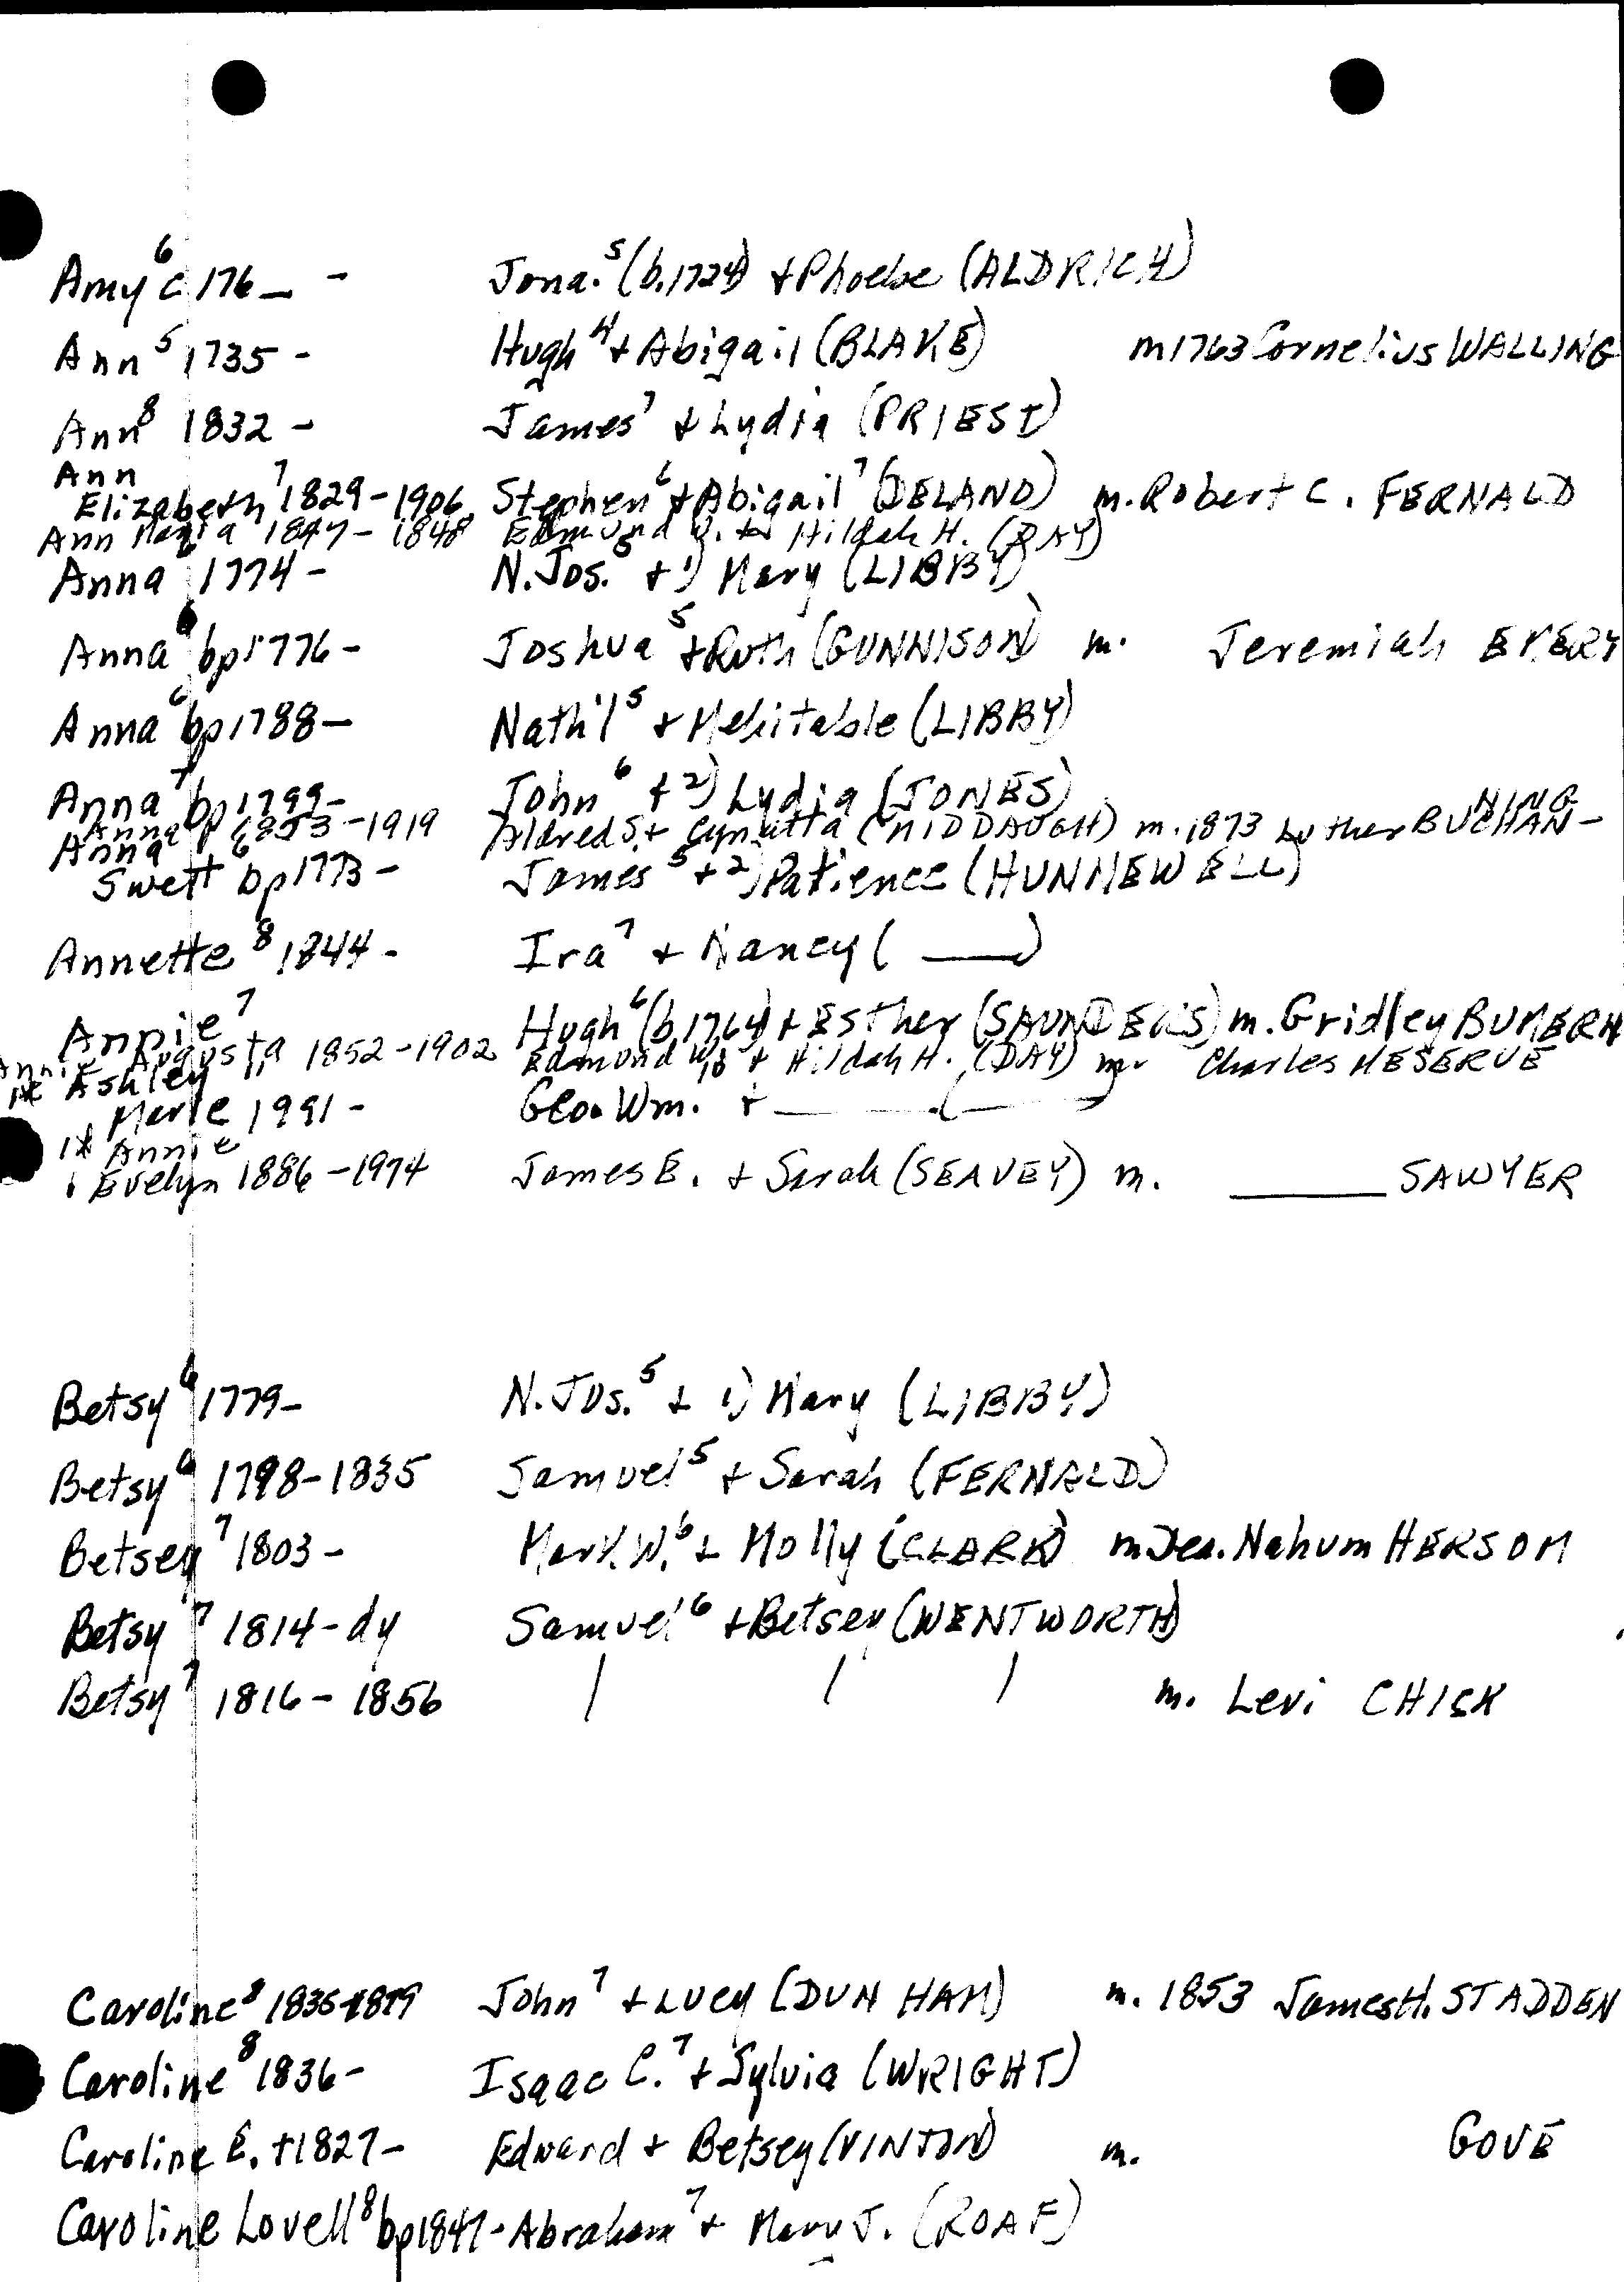 Amy⁶ c 176_ - Jona.⁵ (b.1724) + Phoebe (ALDRICH)
Ann⁵ 1735 - Hugh⁴ + Abigail (BLAKE) m 1763 Cornelius WALLING
Ann⁸ 1832 - James⁷ + Lydia (PRIEST)
Ann
Elizabeth⁷ 1829-1906 Stephen⁶ + Abigail⁷ (DELAND) m. Robert C. FERNALD
Ann Maria 1847-1848 Edmund W. + Hildah H. (DAY)
Anna⁶ 1774 - N. Jos.⁵ + 1) Mary (LIBBY)
Anna⁶ bp 1776 - Joshua⁵ + Ruth (GUNNISON) m. Jeremiah EMERY
Anna⁶ bp 1788 - Nath'l⁵ + Mehitable (LIBBY)
Anna⁷ bp 1799- John⁶ + 2) Lydia (JONES)
Anna 1853-1919 Aldred S. + (MIDDAUGH) m. 1873 Luther BUCHANNING
Anna
Swett⁶ bp 1773 - James⁵ + 2) Patience (HUNNEWELL)
Annette⁸ 1844 - Ira⁷ + Nancy ( ___ )
Annie⁷ Hugh⁶ (b.1764) + Esther (SAUNDERS) m. Gridley
Annie Augusta 1852-1902 Edmund W. + Hildah H. (DAY) m. Charles MESERVE
Ashley
Marie 1991 - Geo. Wm. + ___ ( ___ )
Annie
Evelyn 1886-1974 James E. + Sarah (SEAVEY) m. ___ SAWYER
Betsy⁶ 1779- N. Jos.⁵ + 1) Mary (LIBBY)
Betsy⁶ 1798-1835 Samuel⁵ + Sarah (FERNALD)
Betsey⁷ 1803 - Mark W.⁶ + Molly (CLARK) m. Dea. Nahum HERSOM
Betsy⁷ 1814-dy Samuel⁶ + Betsey (WENTWORTH)
Betsy⁷ 1816-1856 / / / m. Levi CHICK
Caroline⁸ 1835-1879 John⁷ + Lucy (DUNHAM) m. 1853 James H. STADDEN
Caroline⁸ 1836- Isaac C.⁷ + Sylvia (WRIGHT)
Caroline E. +1827- Edward + Betsey (VINTON) m. GOVE
Caroline Lovell⁸ bp 1847- Abraham⁷ + Mary J. (ROAF)